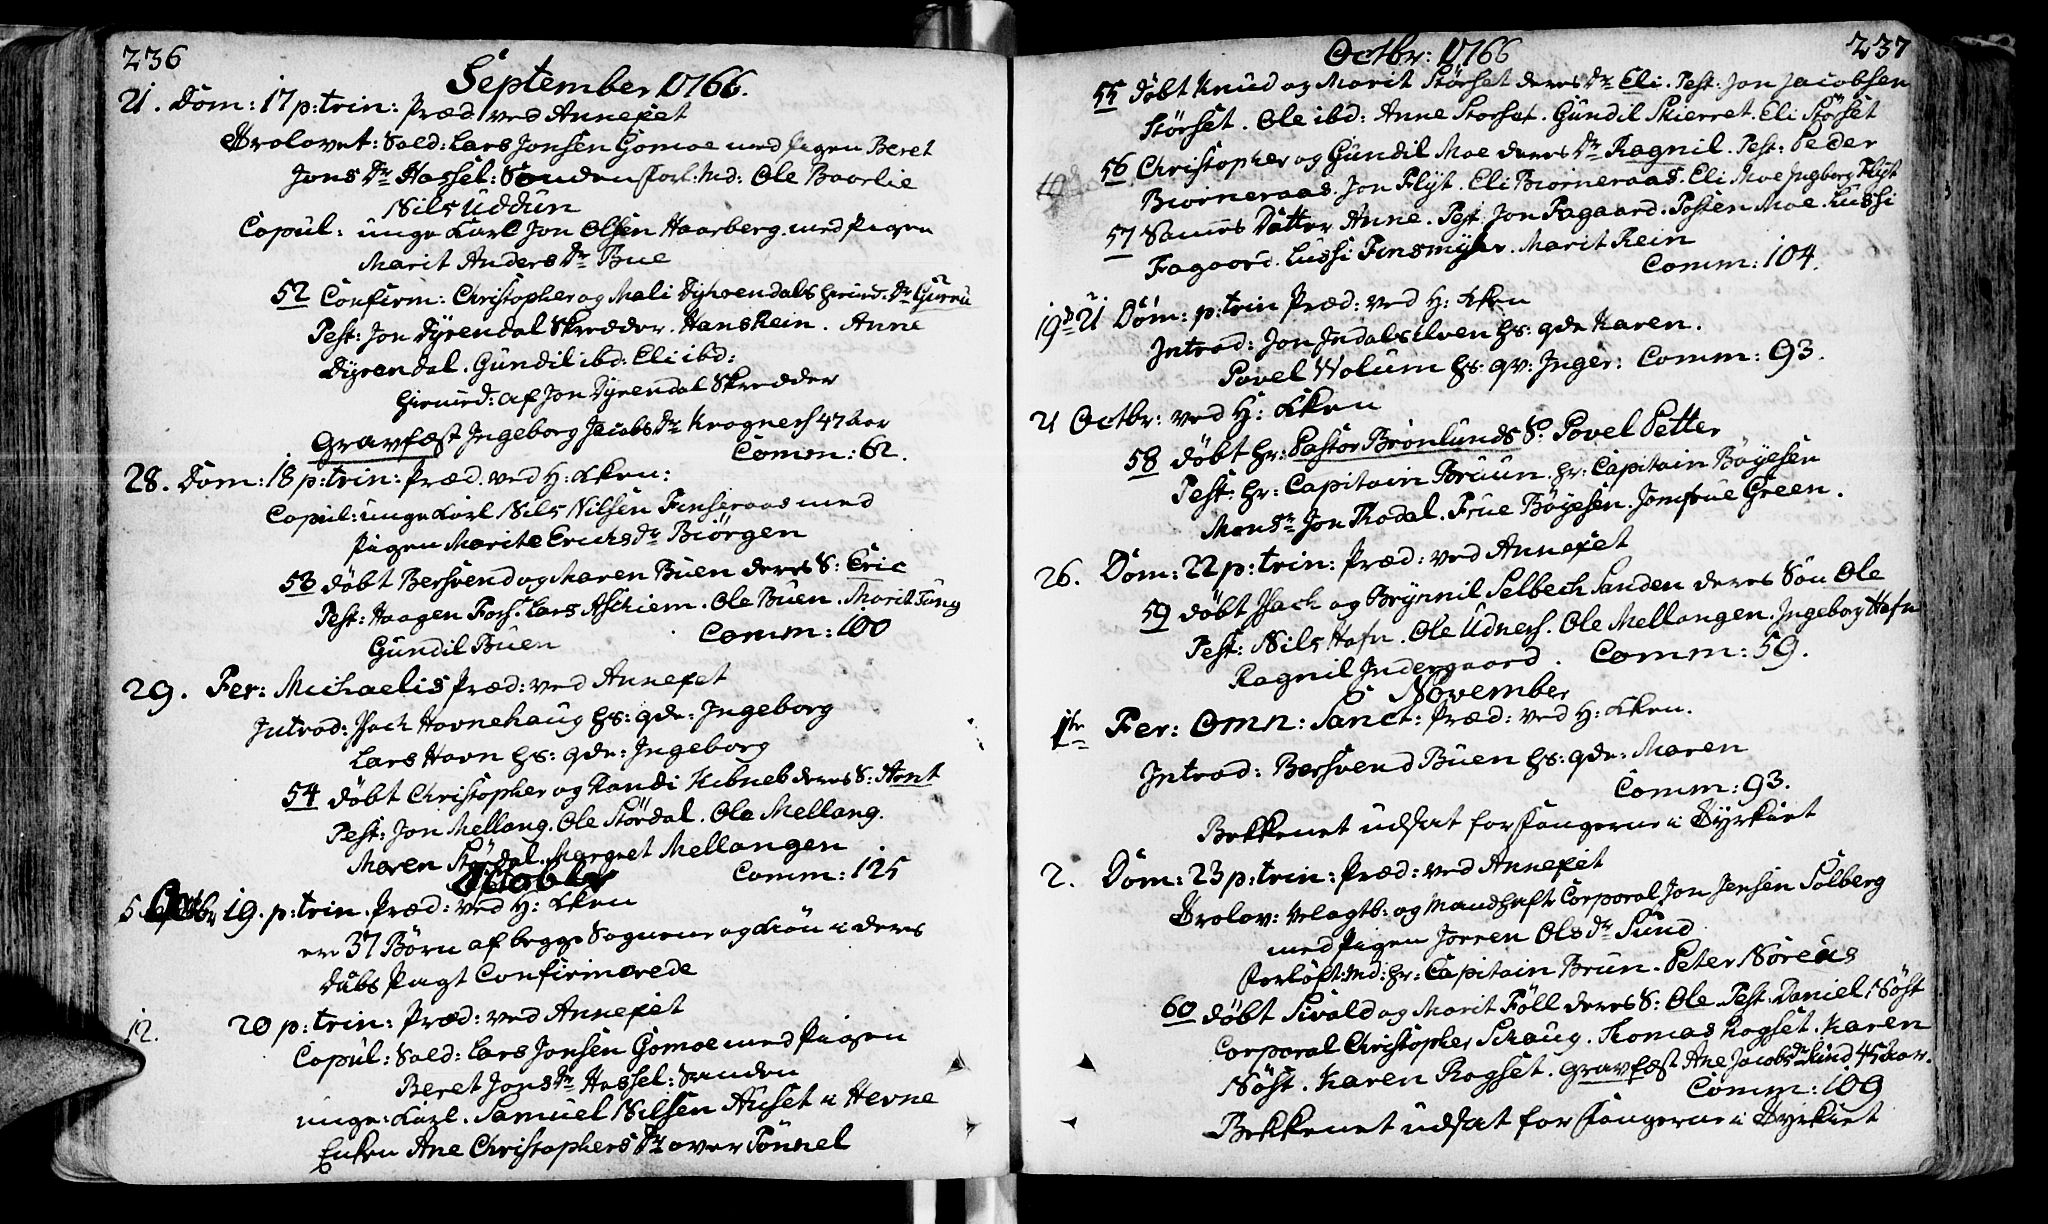 236
September 1766.
21. Dom: 17 p: trin: Præd: ved Annexet
Trolovet: Sold: Lars Jonsen Gomoe med Pigen Beret
Jons Dr Hassel: Sanden forl: Md: Ole Baarlie
Nils Uddun
Copul: unge Karl Jon Olsen Haarberg med Pigen
Marit Anders Dr Bue
52 Confirm: Christopher og Mali Dyhrendals hiemd. Dr Guru
Test: Jon Dyrendal Skredder. Hans Rein. Anne
Dyrendal. Gundil ibd: Eli ibd:
hiemd: af Jon Dyrendal Skredder
Gravfæst Ingeborg Jacobs Dr Krognes 47 Aar
Comm: 62.
28. Dom: 18 p: trin: Præd: ved H: Kken:
Copul: unge Karl Nils Nilsen Finseraas med
Pigen Marite Erichs Dr Biörgen
53 döbt Bersvend og Maren Buen deres S: Eric
Test: Haagen Fors. Lars Aschiem. Ole Buen. Marit Tung
Gundil Buen
Comm: 100
29. Fer: Michaelis Præd: ved Annexet
Introd: Isach Hovnehaug hs: qde: Ingeborg
Lars Havn hs: qde: Ingeborg
54 döbt Christopher og Randi Kibneb deres S: Arnt
Test: Jon Mellang. Ole Stördal. Ole Mellang.
Maren Stördal. Margret Mellangen
Comm: 125
October
5 Octbr 19. p: trin. Præd: ved H: Kken
ere 37 Börn af begge Sognene og Kiön i deres
Daabs Pagt Confirmerede
12. 20 p: trin: Præd: ved Annexet
Copul: Sold: Lars Jonsen Gomoe med Pigen
Beret Jons Dr Hassel: Sanden
unge: Karl. Samuel Nilsen Auset i Hevne
Enken Ane Christophers Dr over Tönnel
Octbr: 1766
237
55 döbt Knud og Marit Störset deres Dr Eli. Test: Jon Jacobsen
Störset. Ole ibd: Anne Storset. Gundil Skierret. Eli Störset
56 Christopher og Gundil Moe deres Dr Ragnil. Test: Peder
Biorneraas. Jon Flÿt. Eli Biorneraas. Eli Moe Ingeborg Flÿt
57 Datter Anne. Test: Jon Fagaard. Tosten Moe. Lussi
Fagaard. Lussi Finsmyhr. Marit Rein
Comm: 104.
19d 21 Dom: p: trin Præd: ved H: Kken
Introd: Jon Indalsilven hs: qde Karen.
Povel Wolum hs: qv: Inger: Comm: 93.
21 Octbr: ved H: Kken
58 döbt Hr: Pastor Brönlunds S: Povel Petter
Test: Hr: Capitain Bruun. Hr: Capitain Böyesen
Monsr Jon Rodal. Frue Böyesen. Jomfrue Green.
26. Dom: 22 p: trin: Præd: ved Annexet
59 döbt Isach og Brynnil Selbech Sanden deres Sön Ole
Test: Nils Hafn. Ole Udnes. Ole Mellangen. Ingebor Hafn
Ragnil Indergaard. Comm: 59.
November
1ste Fer: Omn: Sanct: Præd: ved H: Kken.
Introd: Bersvend Buen hs: qde: Maren
Comm: 93.
Bekkenet udsat for Fangerne i Tyrkiet
2. Dom: 23 p: trin: Præd: ved Annexet
Trolov: Velagtb: og Mandhaft Corporal Jon Jensen Solberg
med Pigen Jorren Ols Dr Sund
forlöft: Md: Hr: Capitain Brun. Peter Noreus
60 döbt Sivald og Marit Föll deres S: Ole Test: Daniel Nöst
Corporal Christopher Schaug. Thomas Rogset. Karen
Nöst. Karen Rogset. Gravfæst Ane Jacobs Dr Lund 45 Aar.
Comm: 109
Bekkenet udsat for Fangerne i Tyrkiet